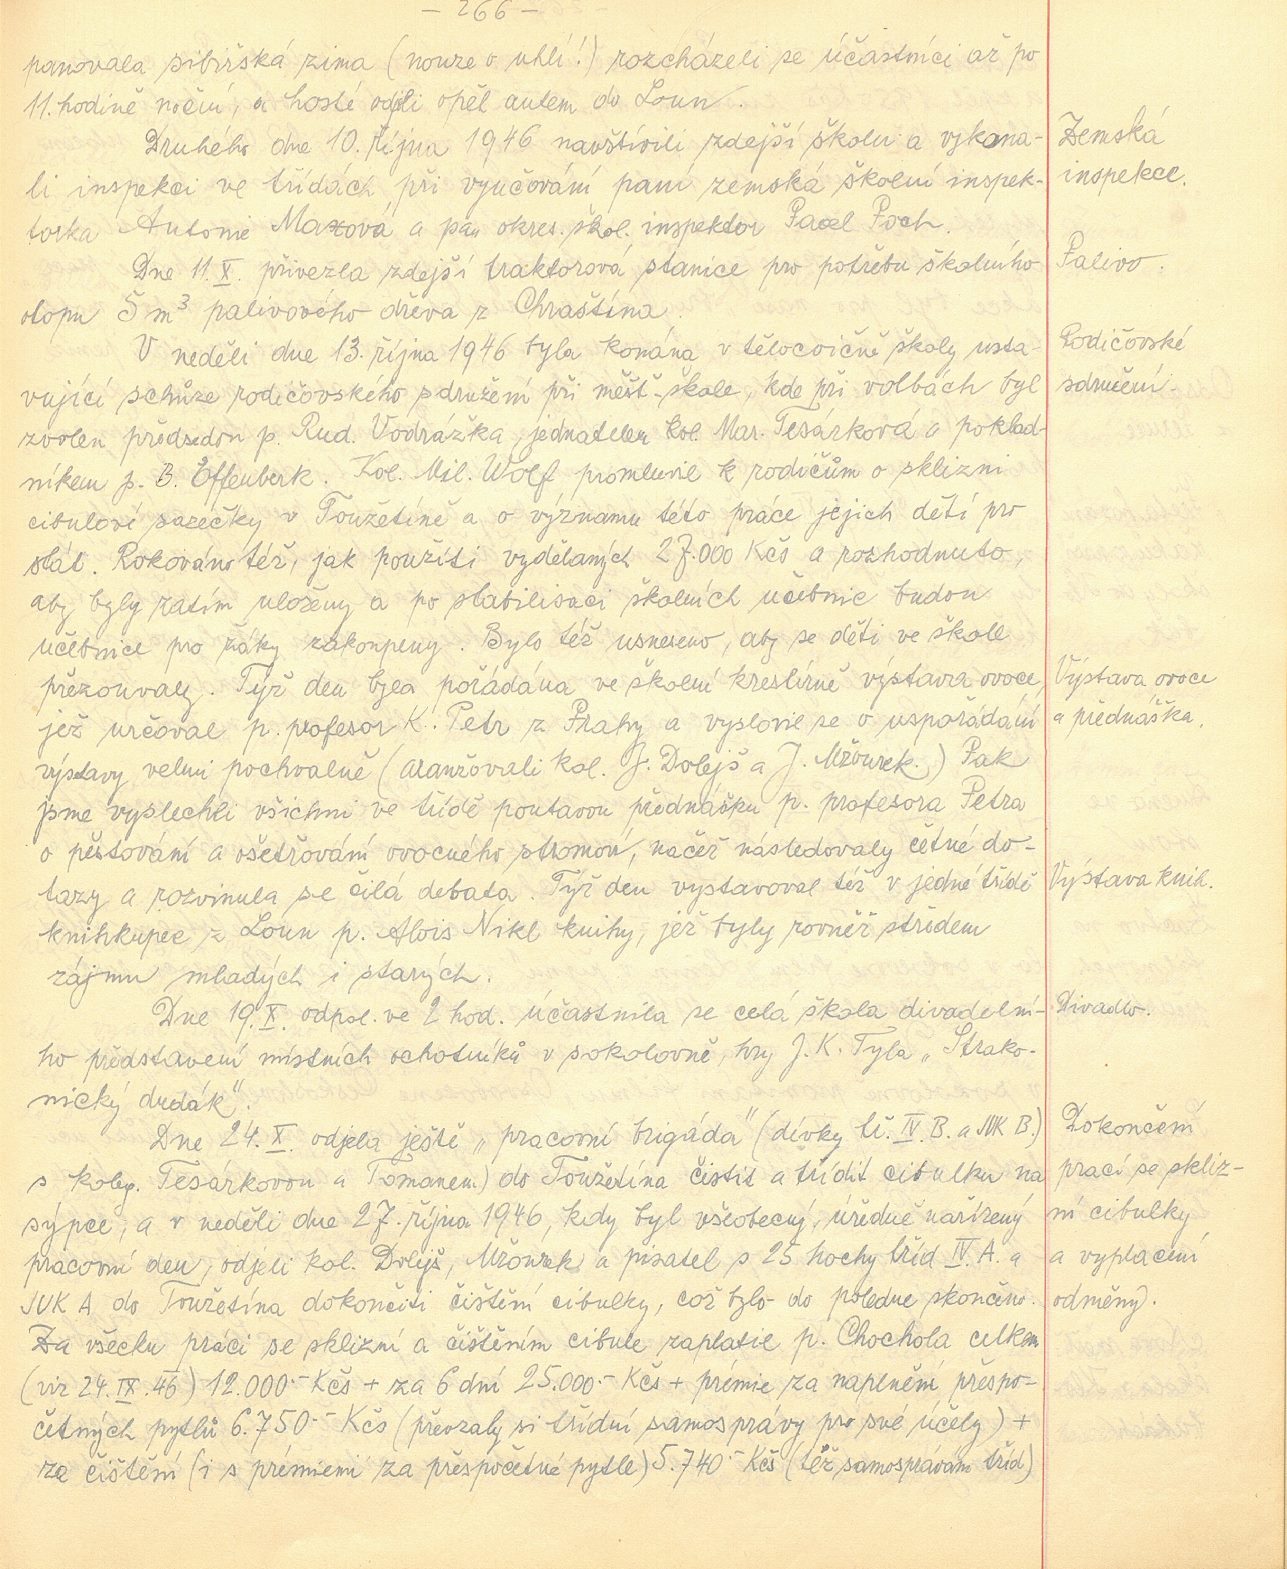 - 266 -
panovala sibiřská zima (nouze o uhlí!) rozcházeli se účastníci až po
11. hodině noční, a hosté odjeli opět autem do Loun.
Druhého dne 10. října 1946 navštívili zdejší školu a vykona-
li inspekci ve třídách při vyučování paní zemská školní inspek-
torka Antonie Maxová a pan okres. škol. inspektor Pavel Poch.
Zemská
inspekce.
Dne 11. X. přivezla zdejší traktorová stanice pro potřebu školního
otopu 5 m³ palivového dřeva z Chraštína.
Palivo.
V neděli dne 13. října 1946 byla konána v tělocvičně školy usta-
vující schůze rodičovského sdružení při měšť. škole, kde při volbách byl
zvolen předsedou p. Rud. Vodrážka, jednatelem kol. Mar. Tesárková a poklad-
níkem p. B. Effenberk. Kol. Mil. Wolf promluvil k rodičům o sklizni
cibulové sazečky v Toužetíně a o významu této práce jejich dětí pro
stát. Rokováno též, jak použíti vydělaných 27.000 Kčs a rozhodnuto,
aby byly zatím uloženy a po stabilisaci školních učebnic budou
učebnice pro žáky zakoupeny. Bylo též usneseno, aby se děti ve škole
přezouvaly. Týž den byla pořádána ve školní kreslírně výstava ovoce,
jež určoval p. profesor K. Petr z Prahy a vyslovil se o uspořádání
výstavy velmi pochvalně (aranžovali kol. J. Dolejš a J. Mžourek.) Pak
jsme vyslechli všichni ve třídě poutavou přednášku p. profesora Petra
o pěstování a ošetřování ovocného stromoví, načež následovaly četné do-
tazy a rozvinula se čilá debata. Týž den vystavoval též v jedné třídě
knihkupec z Loun p. Alois Nikl knihy, jež byly rovněž středem
zájmu mladých i starých.
Rodičovské
sdružení.
Výstava ovoce
a přednáška.
Výstava knih.
Dne 19. X. odpol. ve 2 hod. účastnila se celá škola divadelní-
ho představení místních ochotníků v sokolovně, hry J. K. Tyla „Strako-
nický dudák“.
Divadlo.
Dne 24. X. odjela ještě „pracovní brigáda“ (dívky tř. IV. B. a JUK B.)
s koleg. Tesárkovou a Tomanem) do Toužetína čistit a třídit cibulku na
sýpce, a v neděli dne 27. října 1946, kdy byl všeobecný, úředně nařízený
pracovní den, odjeli kol. Dolejš, Mžourek a pisatel s 25 hochy tříd IV. A. a
JUK A. do Toužetína dokončiti čištění cibulky, což bylo do poledne skončeno.
Za všecku práci se sklizní a čištěním cibule zaplatil p. Chochola celkem
(viz 24. IX. 46) 12.000.- Kčs + za 6 dní 25.000.- Kčs + prémie za naplnění přespo-
četných pytlů 6.750.- Kčs (převzaly si třídní samosprávy pro své účely) +
za čištění (i s prémiemi za přespočetné pytle) 5.740.- Kčs (též samosprávám tříd)
Dokončení
prací se skliz-
ní cibulky
a vyplacení
odměny.